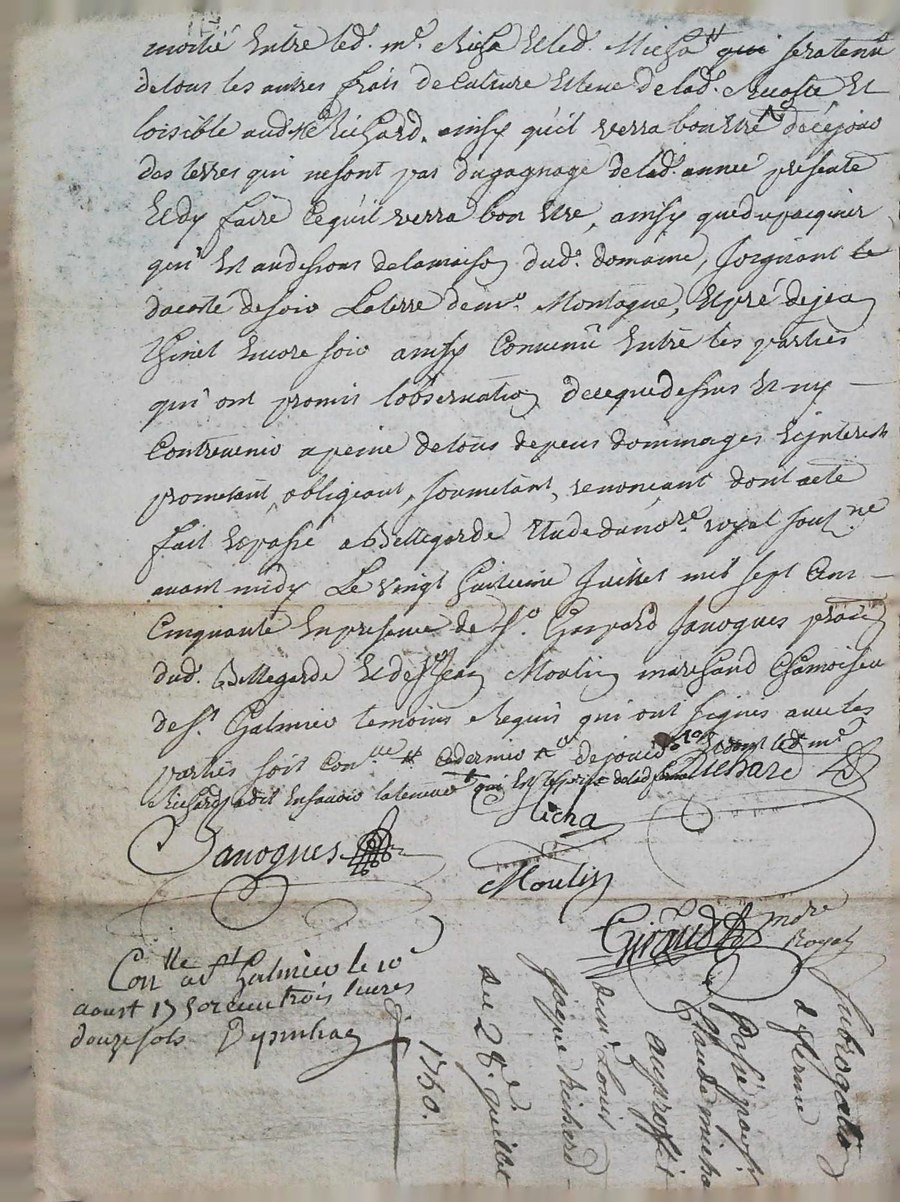 moitié Entre led. mr. Richa Et led. Micha qui sera tenu
de tous les autres frais de Culture Et leve de lad. Recoste Et
loisible aud. Sr Richard, ainsy qu'il verra bon Etre
des terres qui ne sont pas du gagnage de lad. année presente
Et dy faire Ce qu'il verra bon Etre, ainsy que du pacquier
qui Est au dessous de la maison dud. domaine, Joignant le
da costé de soir La terre de mr. Montagne, Et pré de jean
Thinet Encore soir ainsy Convenû Entre les parties
qui ont promis l'observation de ce que dessus Et ny
Contrevenir a peine de tous depens dommages Et jnterests
prometant, obligeant, soumetant, renonceant dont acte
fait Et passé a Bellegarde Etude du nore. royal sousne
avant midy Le vingt huitieme Juillet mil sept Cens
Cinquante En presence de Sr. Gaspard Janoques
dud. Bellegarde Et de Sr Jean Moulin marchand Chamoiseur
de St. Galmier temoins Requis qui ont signes avec les
parties soit Conlle
Richard a dit En savoir la teneur qui Est de lad. ferme Richard
Micha
Janoques
Moulin
Guiraud nore
Royal
Conlle a St Galmier le 10e
aoust 1750 receu trois livres
douze sols
Subrogation
d ferme
Passé par Sr
Claude micha
au proffit
de mr. Louis
jaque Richard
du 28e juillet
1750.